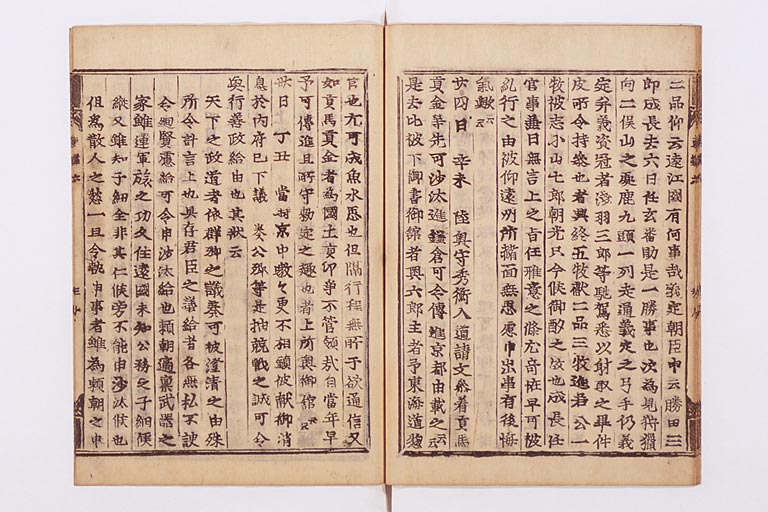 二品仰云遠江國有何事哉義定朝臣申云勝田三
郎成長去六日任玄蕃助是一勝事也次為見狩獵
向二俣山之處鹿九頭一列走通義定之弓手仍義
定并義資冠者淺羽三郎等馳駕悉以射取之畢件
皮所令持參也者興終五枚獻二品三枚進若公一
枚被志小山七郎朝光只今候御酌之故也成長任
官事無日無言上之旨任雅意之條尤奇恠早可被
糺行之由被仰遠州所搆面無思慮申出事有後悔
氣歟云云
廿四日 辛未 陸奥守秀衡入道請文參着貢馬
貢金等先可沙汰進鎌倉可令傳進京都由載之云云
是去比被下御書御舘者奥六郎主者予東海道惣
官也尤可成魚水思也但隔行程無所于欲通信又
如貢馬貢金者為國土貢印爭不管領哉自當年早
予可傳進且所守勅定之趣也者上所奥御舘云云
卅日 丁丑 當時京中嗷々更不相鎭仍獻御消
息於内府已下議奏公卿等是抽兢戰之誠可令
奐行善政給由也其狀云
天下之政道者依群卿之議奏可被澄清之由殊
所令計言上也各存君臣之議給者各無私不諛
令廻賢慮給可令申沙汰給也頼朝適稟武器之
家雖運軍旅之功久住遠國未知公務之子細候
縦又雖知子細全非其仁候旁不能申沙汰候也
但為散人之愁一旦令執申事者雖為頼朝之申